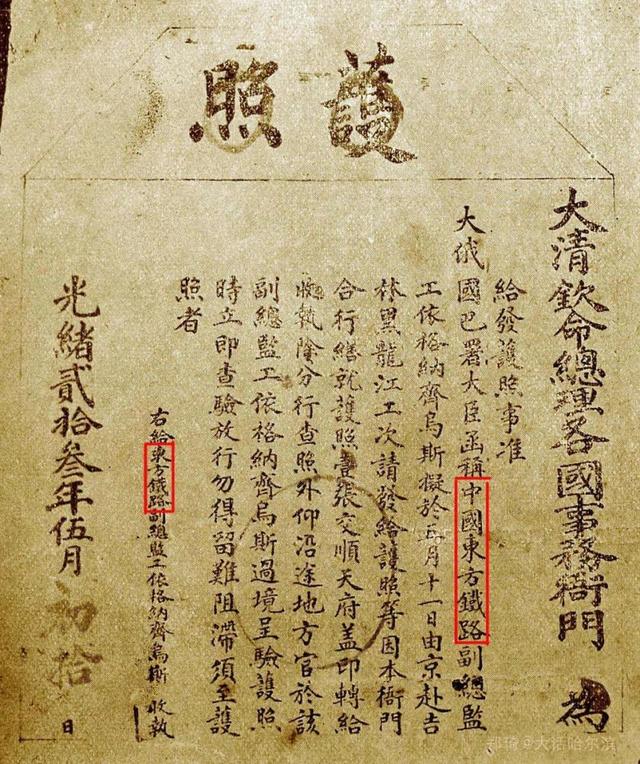 護照
大清欽命總理各國事務衙門 為
給發護照事准
大俄國巴署大臣函稱中國東方鐵路副總監
工依格納齊烏斯擬於五月十一日由京赴吉
林黑龍江工次請發給護照等因本衙門
合行繕就護照壹張交順天府蓋印轉給
收執除分行查照外仰沿途地方官於該
副總監工依格納齊烏斯過境呈驗護照
時立即查驗放行勿得留難阻滯須至護
照者
右給東方鐵路副總監工依格納齊烏斯 收執
光緒貳拾叁年伍月初拾日
@大话哈尔滨